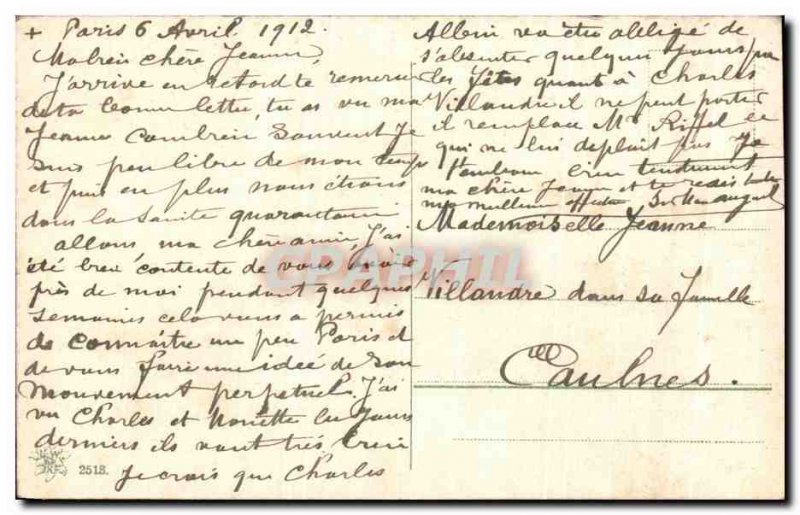 + Paris 6 Avril 1912.
chère Jeanne,
J'arrive en retard te remercier
de ta bonne lettre, tu as vu ma
Jeanne combien souvent je
suis peu libre de mon temps
et puis en plus nous étions
dans la Sainte quarantaine
allons ma chère amie, J'ai
été bien contente de vous avoir
près de moi pendant quelques
semaines cela vous a permis
de connaître un peu Paris et
de vous faire une idée de son
mouvement perpetuel. J'ai
vu Charles et Nonette les jours
derniers ils vont très bien
Je crois que Charles
Albin va être obligé de
s'absenter quelques jours pour
les fêtes quant à Charles
Villandre il ne peut partir
il remplace Mr Riffel ce
qui ne lui deplait pas Je
t'embrasse bien tendrement
ma chère Jeanne et te redis toute
Mademoiselle Jeanne
Villandre dans sa famille
Caulnes.
2518.
CPAPHIL